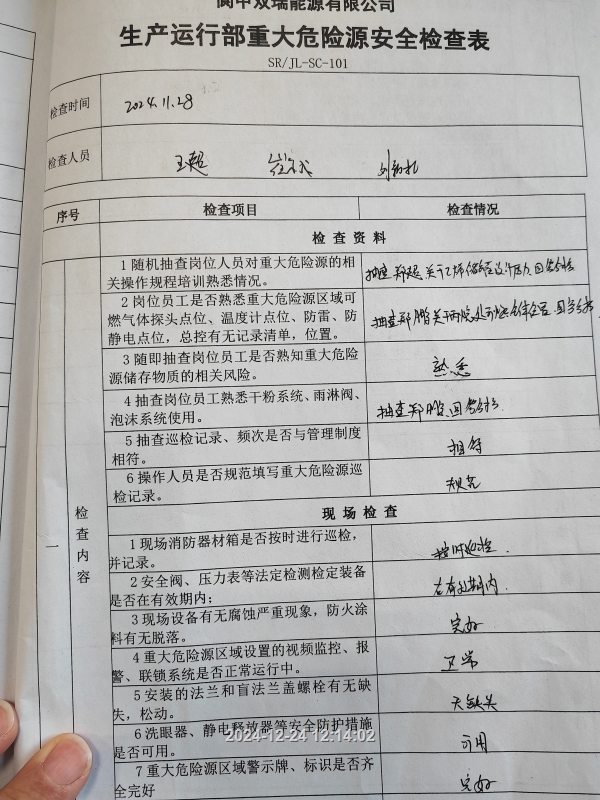 阆中双瑞能源有限公司
生产运行部重大危险源安全检查表
SR/JL-SC-101
检查时间 2024.11.28
检查人员 王超
序号 检查项目 检查情况
检查资料
一
检查内容
1 随机抽查岗位人员对重大危险源的相
关操作规程培训熟悉情况。
2 岗位员工是否熟悉重大危险源区域可
燃气体探头点位、温度计点位、防雷、防
静电点位，总控有无记录清单，位置。
3 随即抽查岗位员工是否熟知重大危险
源储存物质的相关风险。
熟悉
4 抽查岗位员工熟悉干粉系统、雨淋阀、
泡沫系统使用。
抽查郑鹏，回答
5 抽查巡检记录、频次是否与管理制度
相符。
相符
6 操作人员是否规范填写重大危险源巡
检记录。
规范
现场检查
1 现场消防器材箱是否按时进行巡检，
并记录。
按时巡检.
2 安全阀、压力表等法定检测检定装备
是否在有效期内；
在有效期内
3 现场设备有无腐蚀严重现象，防火涂
料有无脱落。
完好
4 重大危险源区域设置的视频监控、报
警、联锁系统是否正常运行中。
正常
5 安装的法兰和盲法兰盖螺栓有无缺
失，松动。
无缺失
6 洗眼器、静电释放器等安全防护措施
是否可用。
可用
7 重大危险源区域警示牌、标识是否齐
全完好
完好
2024-12-24 12:14:02